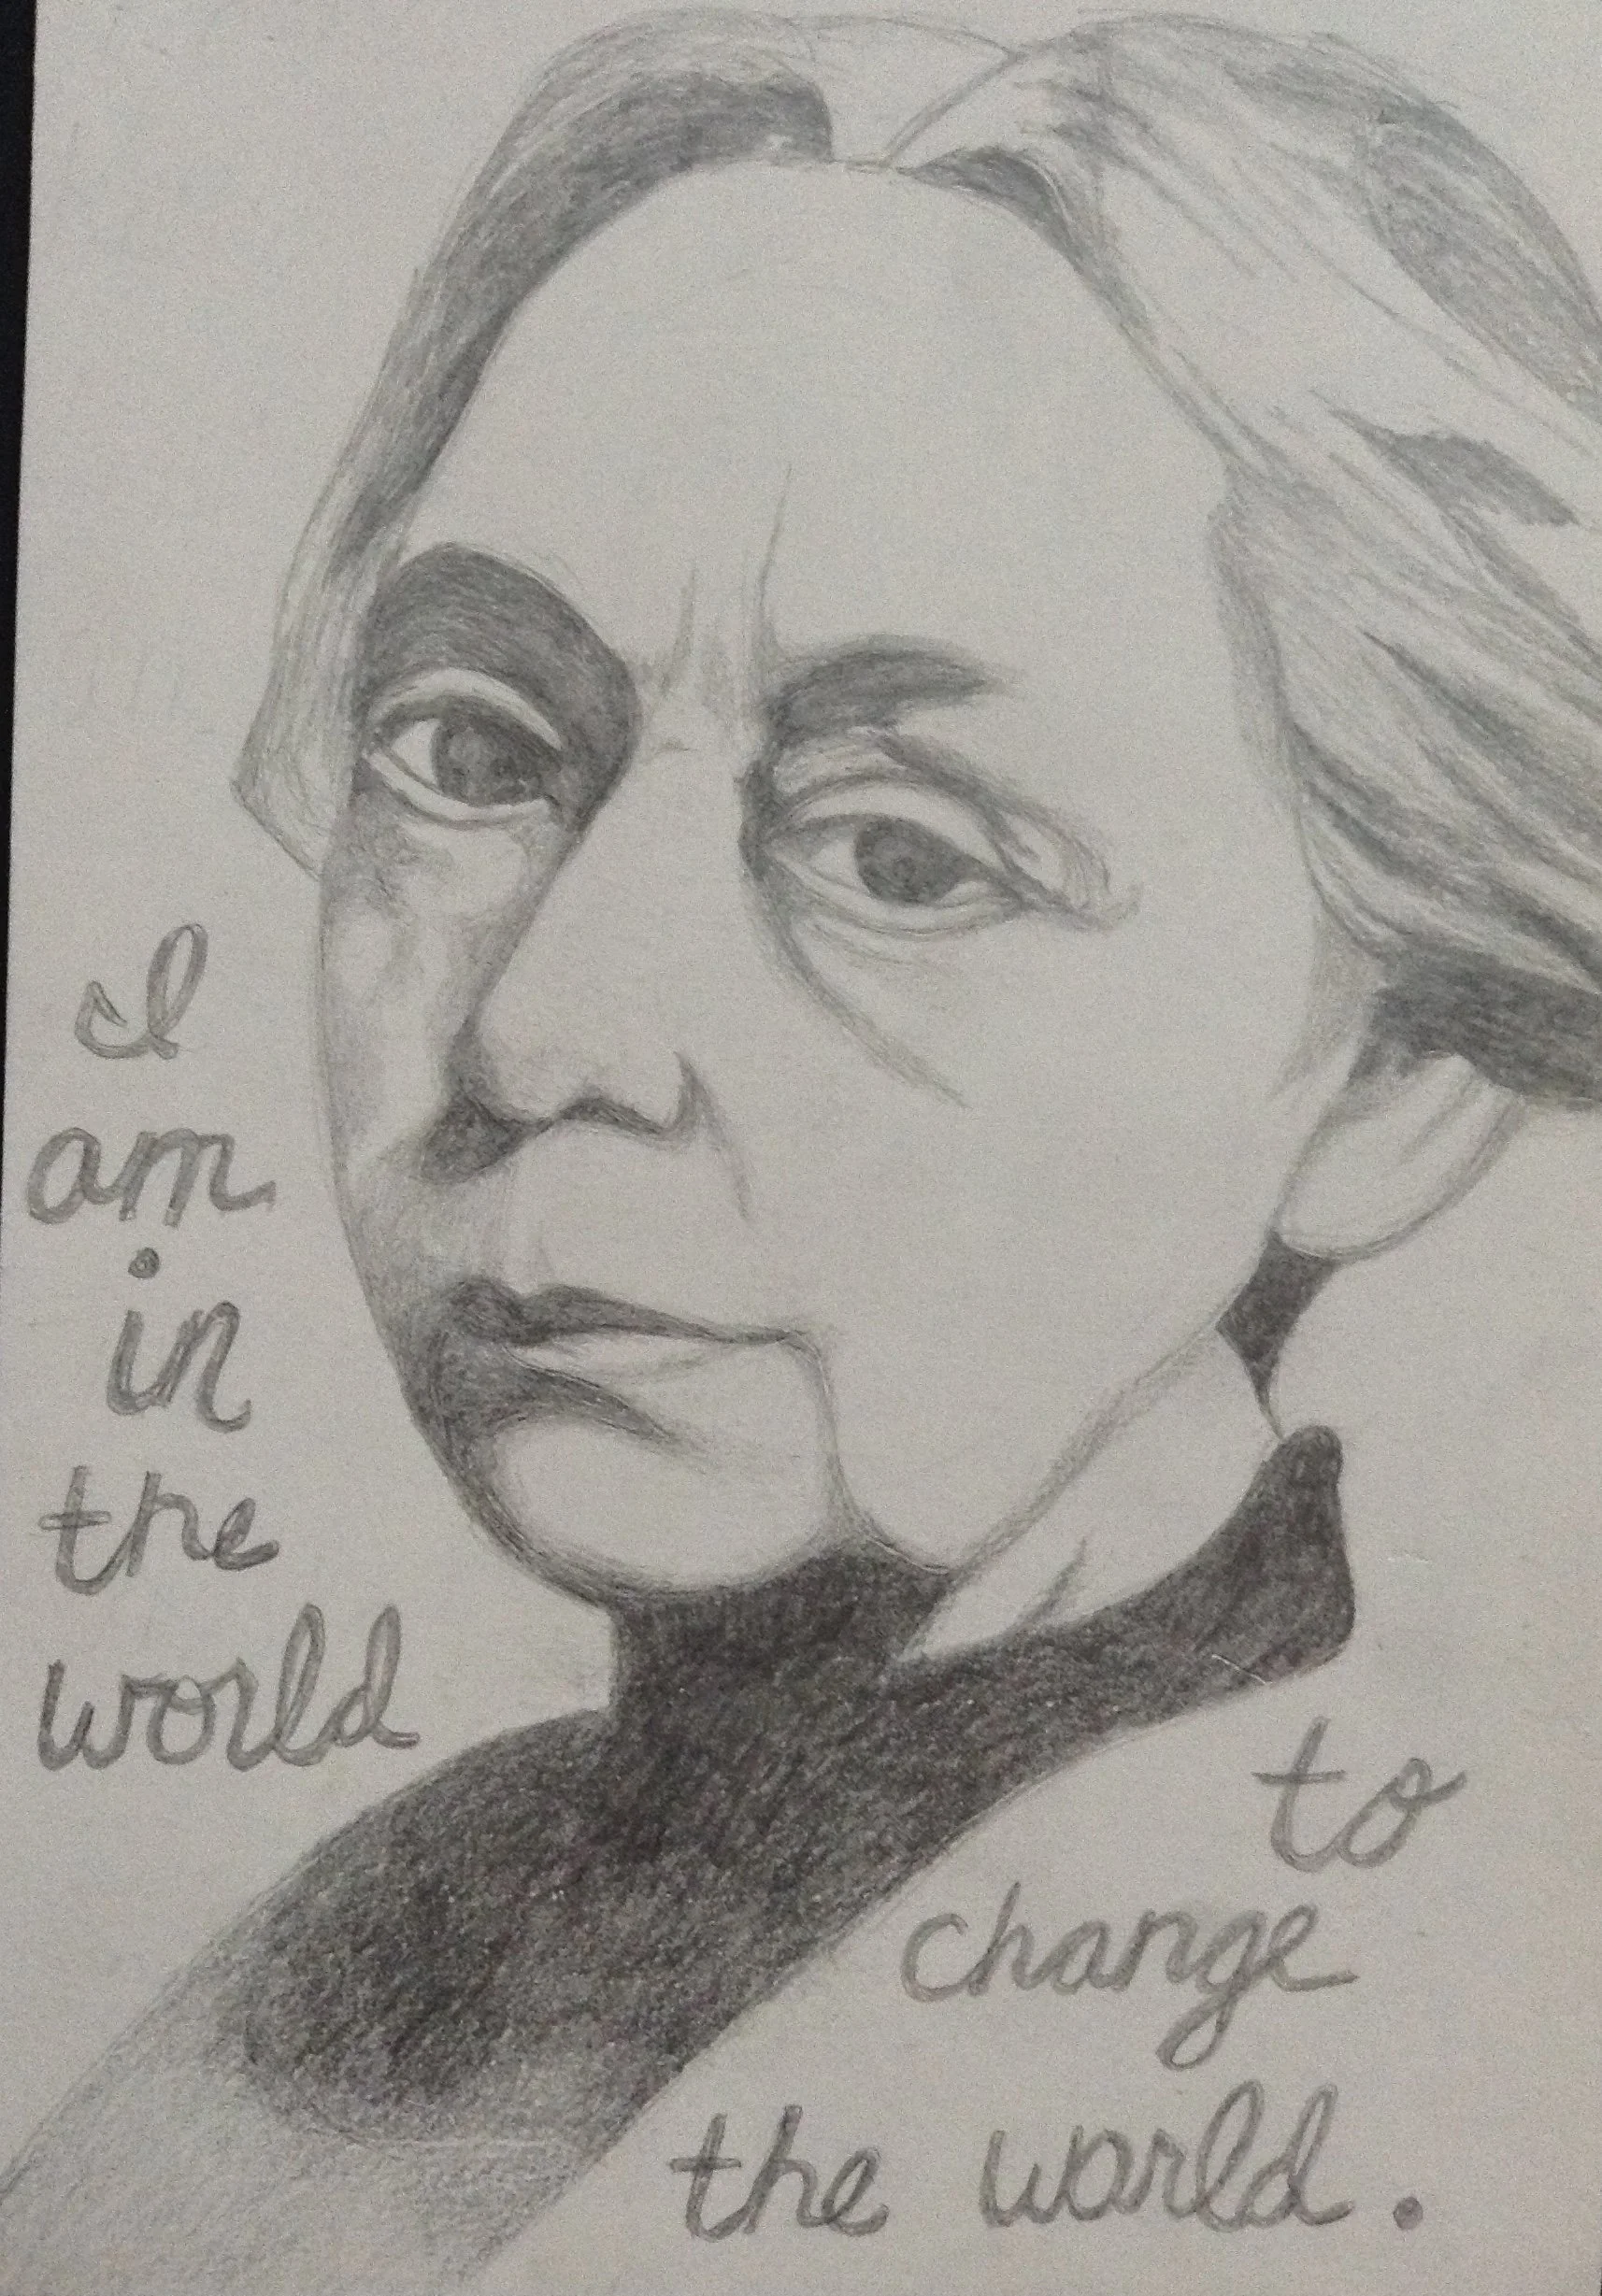 I
am
in
the
world
to
change
the world.